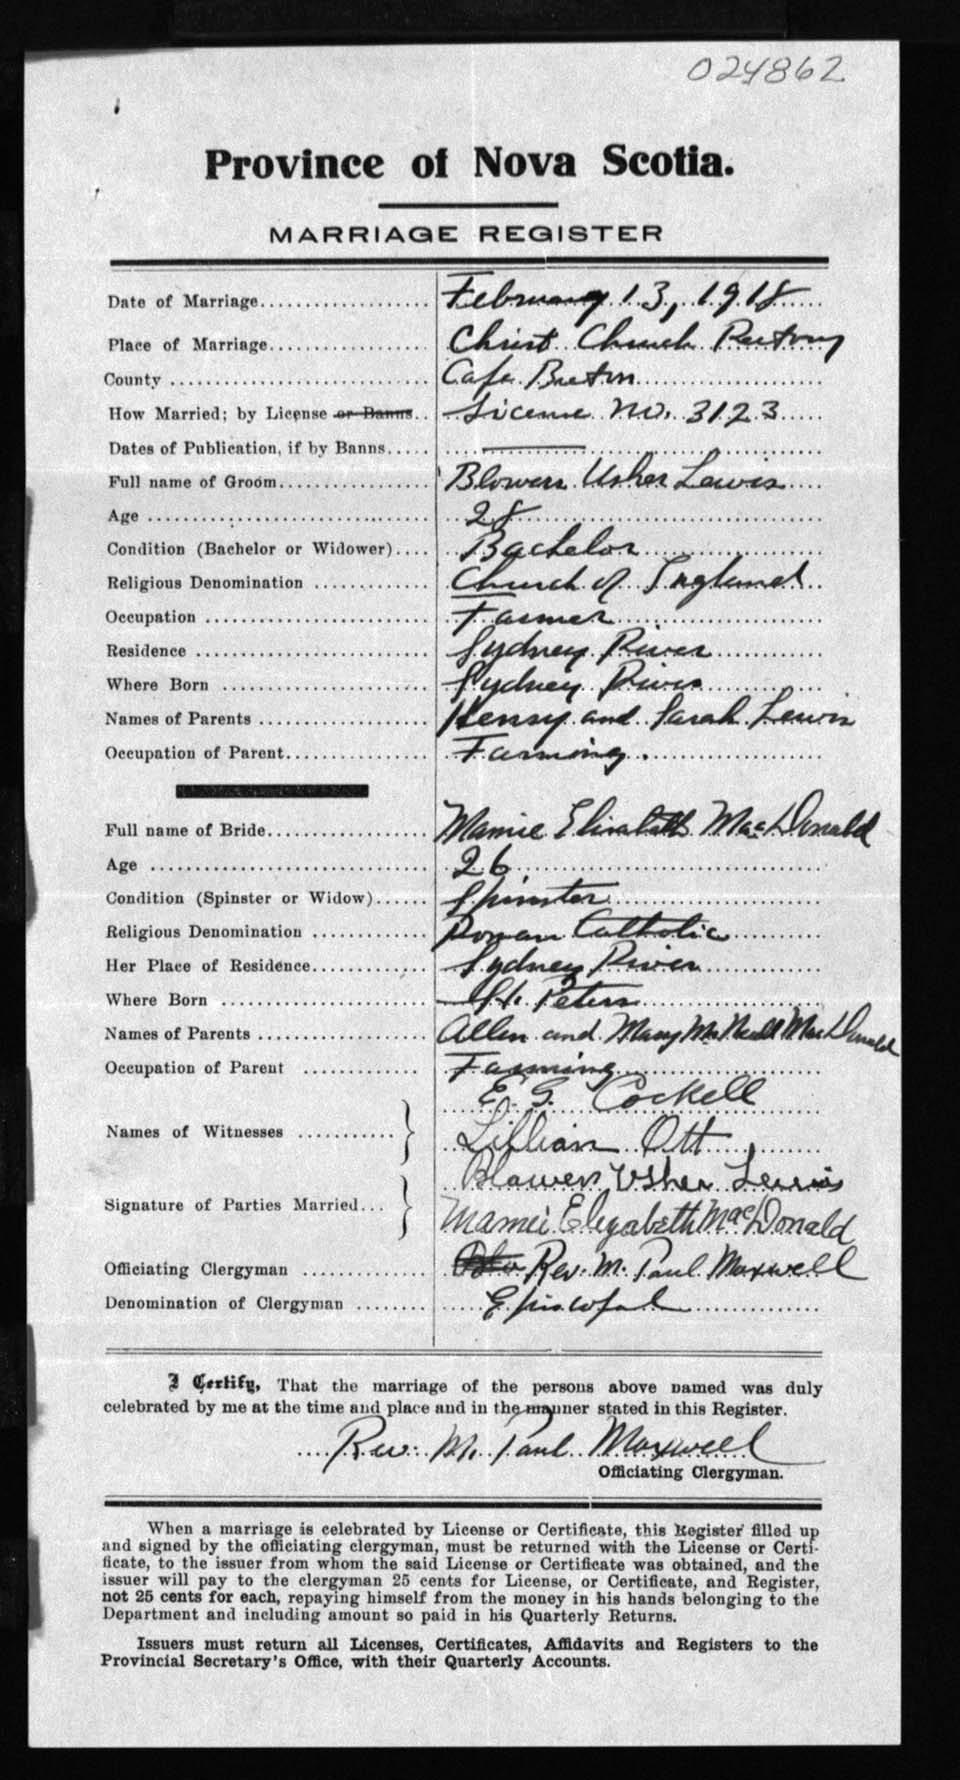 024862
Province of Nova Scotia.
MARRIAGE REGISTER
Date of Marriage.................. February 13, 1918
Place of Marriage................. Christ Church Rectory
County ........................... Cape Breton
How Married; by License or Banns.. License No. 3123
Dates of Publication, if by Banns..... ———
Full name of Groom................ Blowers Usher Lewis
Age .............................. 28
Condition (Bachelor or Widower).... Bachelor
Religious Denomination ............ Church of England
Occupation ....................... Farmer
Residence ........................ Sydney River
Where Born ....................... Sydney River
Names of Parents ................. Henry and Sarah Lewis
Occupation of Parent.............. Farming.
Full name of Bride................ Mamie Elizabeth MacDonald
Age .............................. 26
Condition (Spinster or Widow)...... Spinster
Religious Denomination ............ Roman Catholic
Her Place of Residence............ Sydney River
Where Born ....................... St. Peters
Names of Parents ................. Allen and Mary McNeill MacDonald
Occupation of Parent ............ Farming
E. G. Cockell
Names of Witnesses ...........
Lillian Ott
Blowers Usher Lewis
Signature of Parties Married...
Mamei Elezabeth MacDonald
Officiating Clergyman ............. Rev. M. Paul Maxwell
Denomination of Clergyman ........ Episcopal
I Certify, That the marriage of the persons above named was duly
celebrated by me at the time and place and in the manner stated in this Register.
Rev. M. Paul Maxwell
Officiating Clergyman.
When a marriage is celebrated by License or Certificate, this Register filled up
and signed by the officiating clergyman, must be returned with the License or Certi-
ficate, to the issuer from whom the said License or Certificate was obtained, and the
issuer will pay to the clergyman 25 cents for License, or Certificate, and Register,
not 25 cents for each, repaying himself from the money in his hands belonging to the
Department and including amount so paid in his Quarterly Returns.
Issuers must return all Licenses, Certificates, Affidavits and Registers to the
Provincial Secretary's Office, with their Quarterly Accounts.